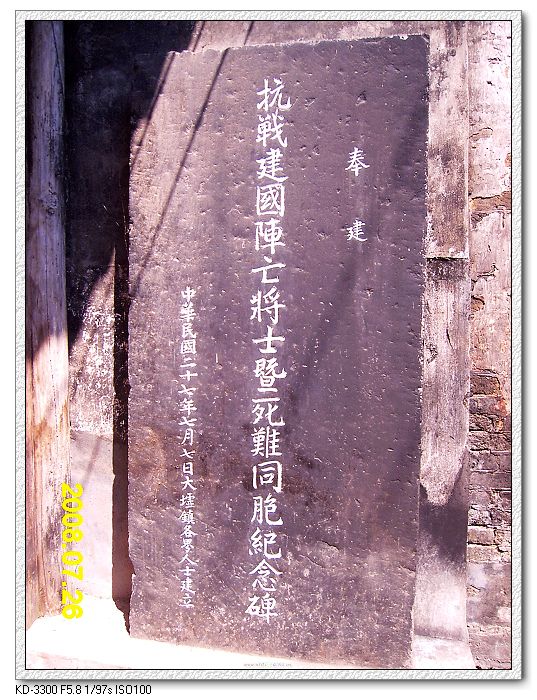 奉建
抗戰建國陣亡將士暨死難同胞紀念碑
中華民國二十七年七月七日大墟鎮各界人士建立
2008.07.26
KD-3300 F5.8 1/97s ISO100